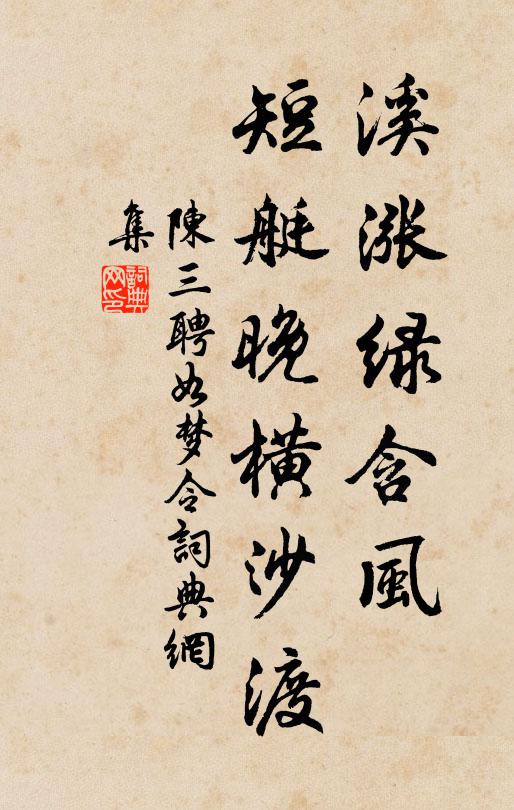 溪漲绿含風
短艇晚横沙渡
陳三聘如梦令詞典網
集
詞典网印